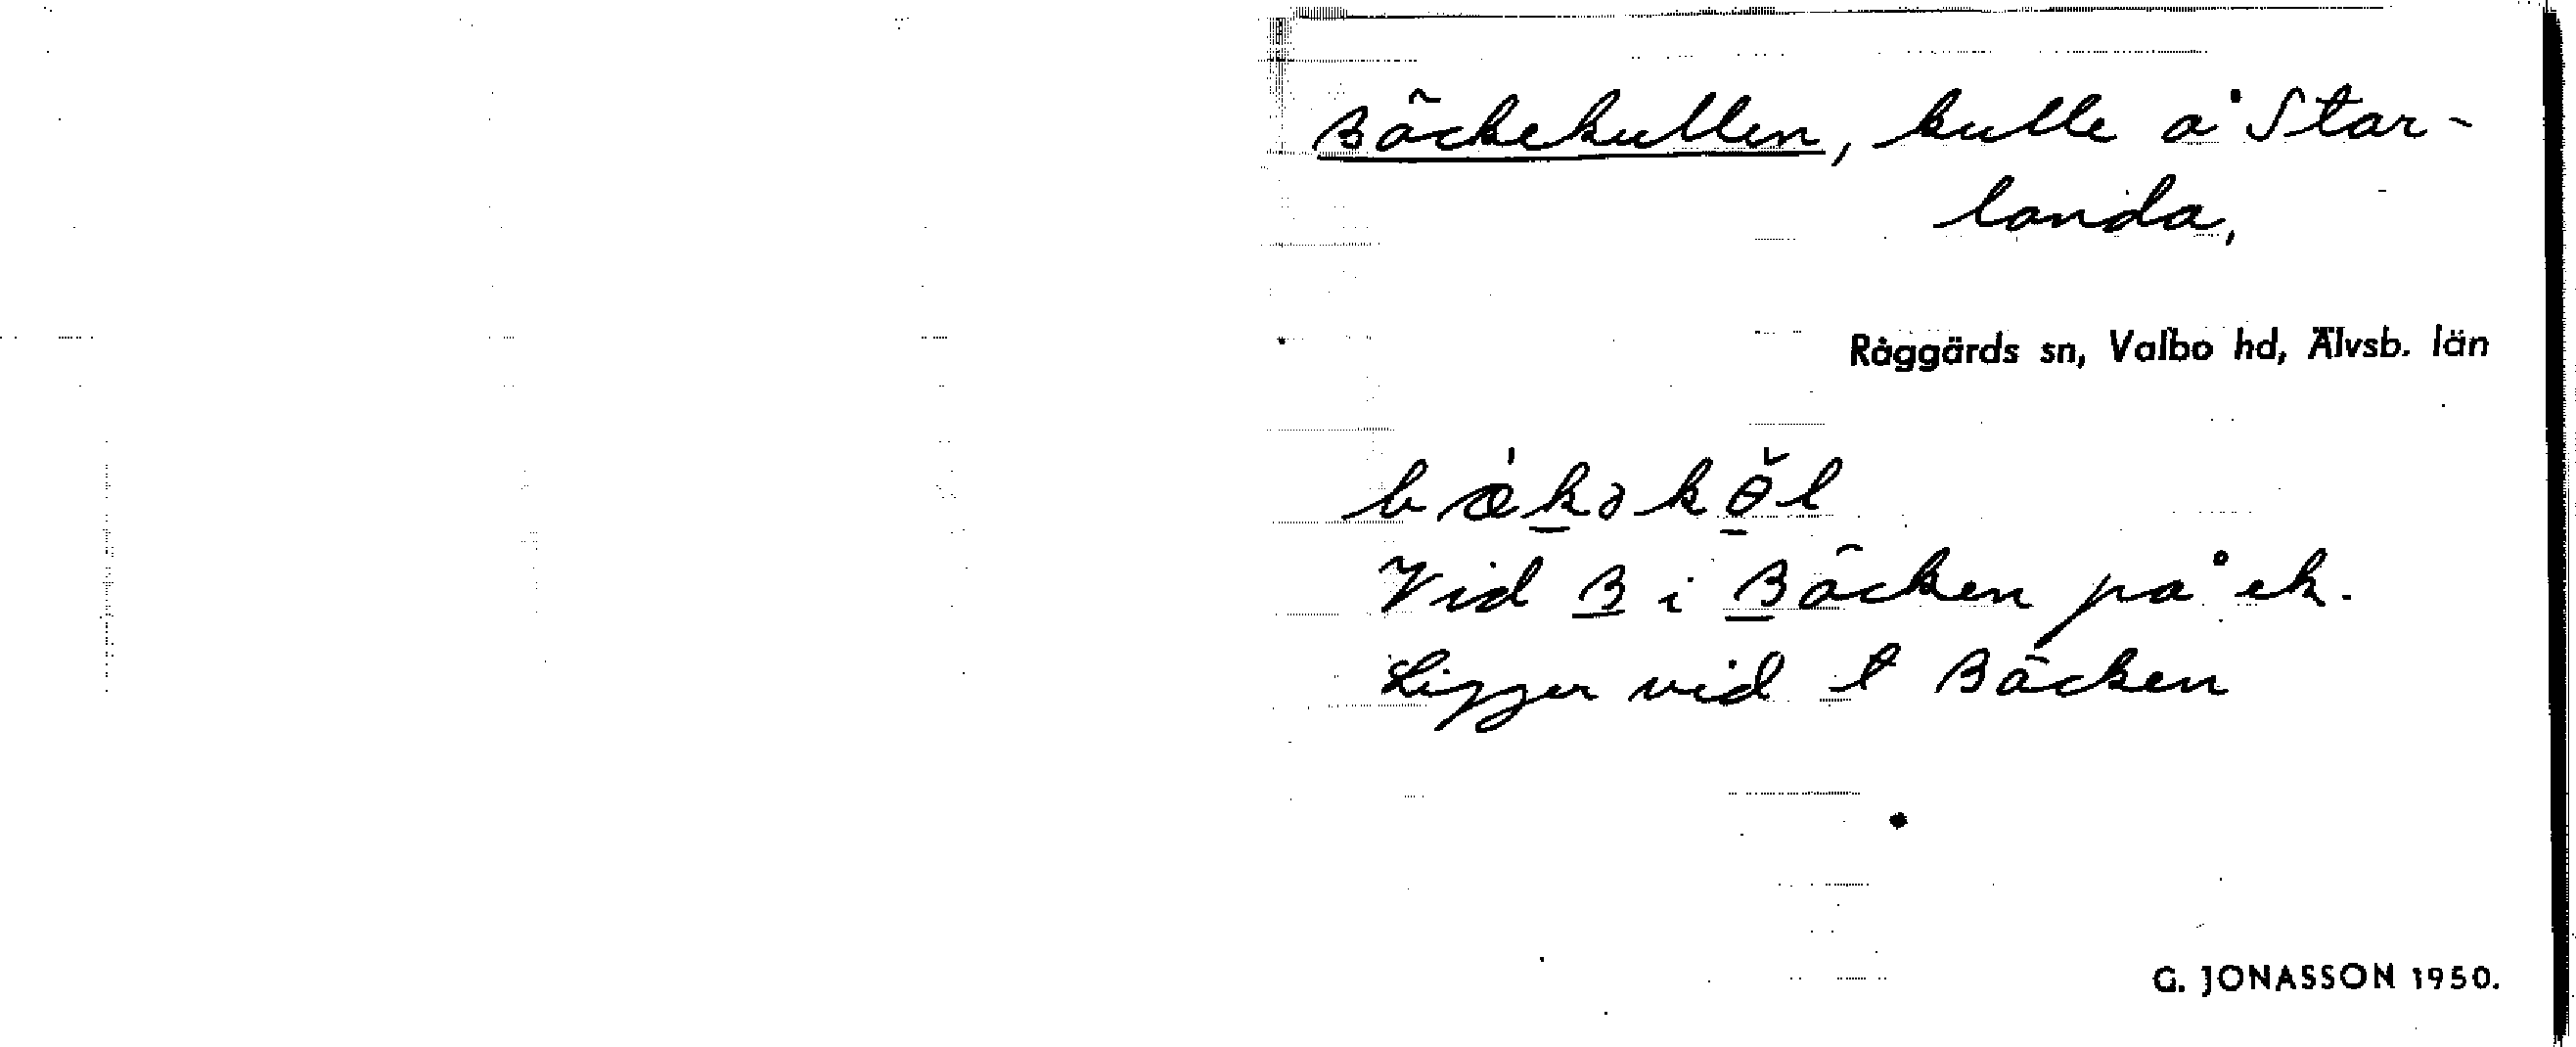 Bäckekullen, kulle å Star-
landa,
Råggärds sn, Valbo hd, Älvsb. län
bæ̀kəkɵ̌l
Vid B i Bäcken på ek.
Ligger vid t Bäcken
G. JONASSON 1950.